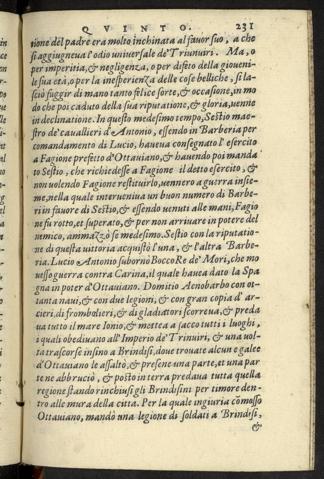 QVINTO. 231
tione del padre era molto inchinata al fauor suo, a che
si aggiugneua l'odio uniuersale de' Triunuiri. Ma, o
per imperitia, & negligenza, o per difeto della gioueni-
le sua età, o per la inesperienza delle cose belliche, si la-
sciò fuggir di mano tanto felice sorte, & occasione, in mo
do che poi caduto della sua riputatione, & gloria, uenne
in declinatione. In questo medesimo tempo, Sestio mae-
stro de' cauallieri d'Antonio, essendo in Barberia per
comandamento di Lucio, haueua consegnato l'esercito
a Fagione prefetto d'Ottauiano, & hauendo poi manda
to Sestio, che richiedesse a Fagione il detto esercito, &
non uolendo Fagione restituirlo, uennero a guerra insie-
me, nella quale interueniua un buon numero di Barbe-
ri in fauore di Sestio, & essendo uenuti alle mani, Fagio
ne fu rotto, et superato, & per non arriuare in potere del
nimico, ammazzò se medesimo. Sestio con la riputatio-
ne di questa uittoria acquistò l'una, & l'altra Barbe-
ria. Lucio Antonio subornò Bocco Re de' Mori, che mo
uesso guerra contra Carina, il quale hauea dato la Spa
gna in poter d'Ottauiano. Domitio Aenobarbo con ot-
tanta naui, & con due legioni, & con gran copia d'ar-
cieri, di frombolieri, & di gladiatori scorreua, & preda
ua tutto il mare Ionio, & mettea a sacco tutti i luoghi,
i quali obediuano all'Imperio de' Triunuiri, & una uol-
ta trascorse insino a Brindisi, doue trouate alcune galee
d'Ottauiano le assaltò, & presene una parte, et una par
te ne abbruciò, & posto in terra predaua tutta quella
regione stando rinchiusi gli Brindisini per timore den-
tro alle mura della città. Per la quale ingiuria cōmosso
Ottauiano, mandò una legione di soldati a Brindisi,
&